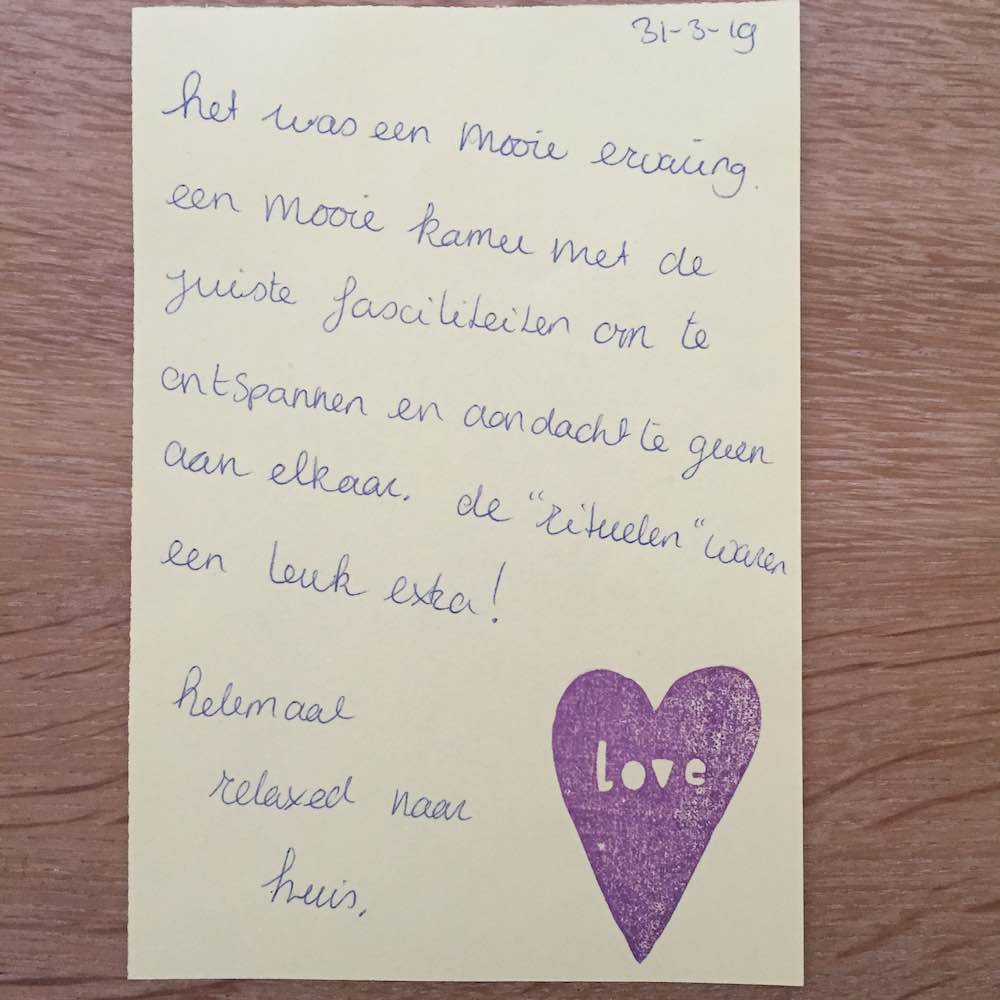 31-3-19
het was een mooie ervaring.
een mooie kamer met de
juiste fasciliteiten om te
ontspannen en aandacht te geven
aan elkaar. de "rituelen" waren
een leuk extra!
helemaal
relaxed naar
huis.
love